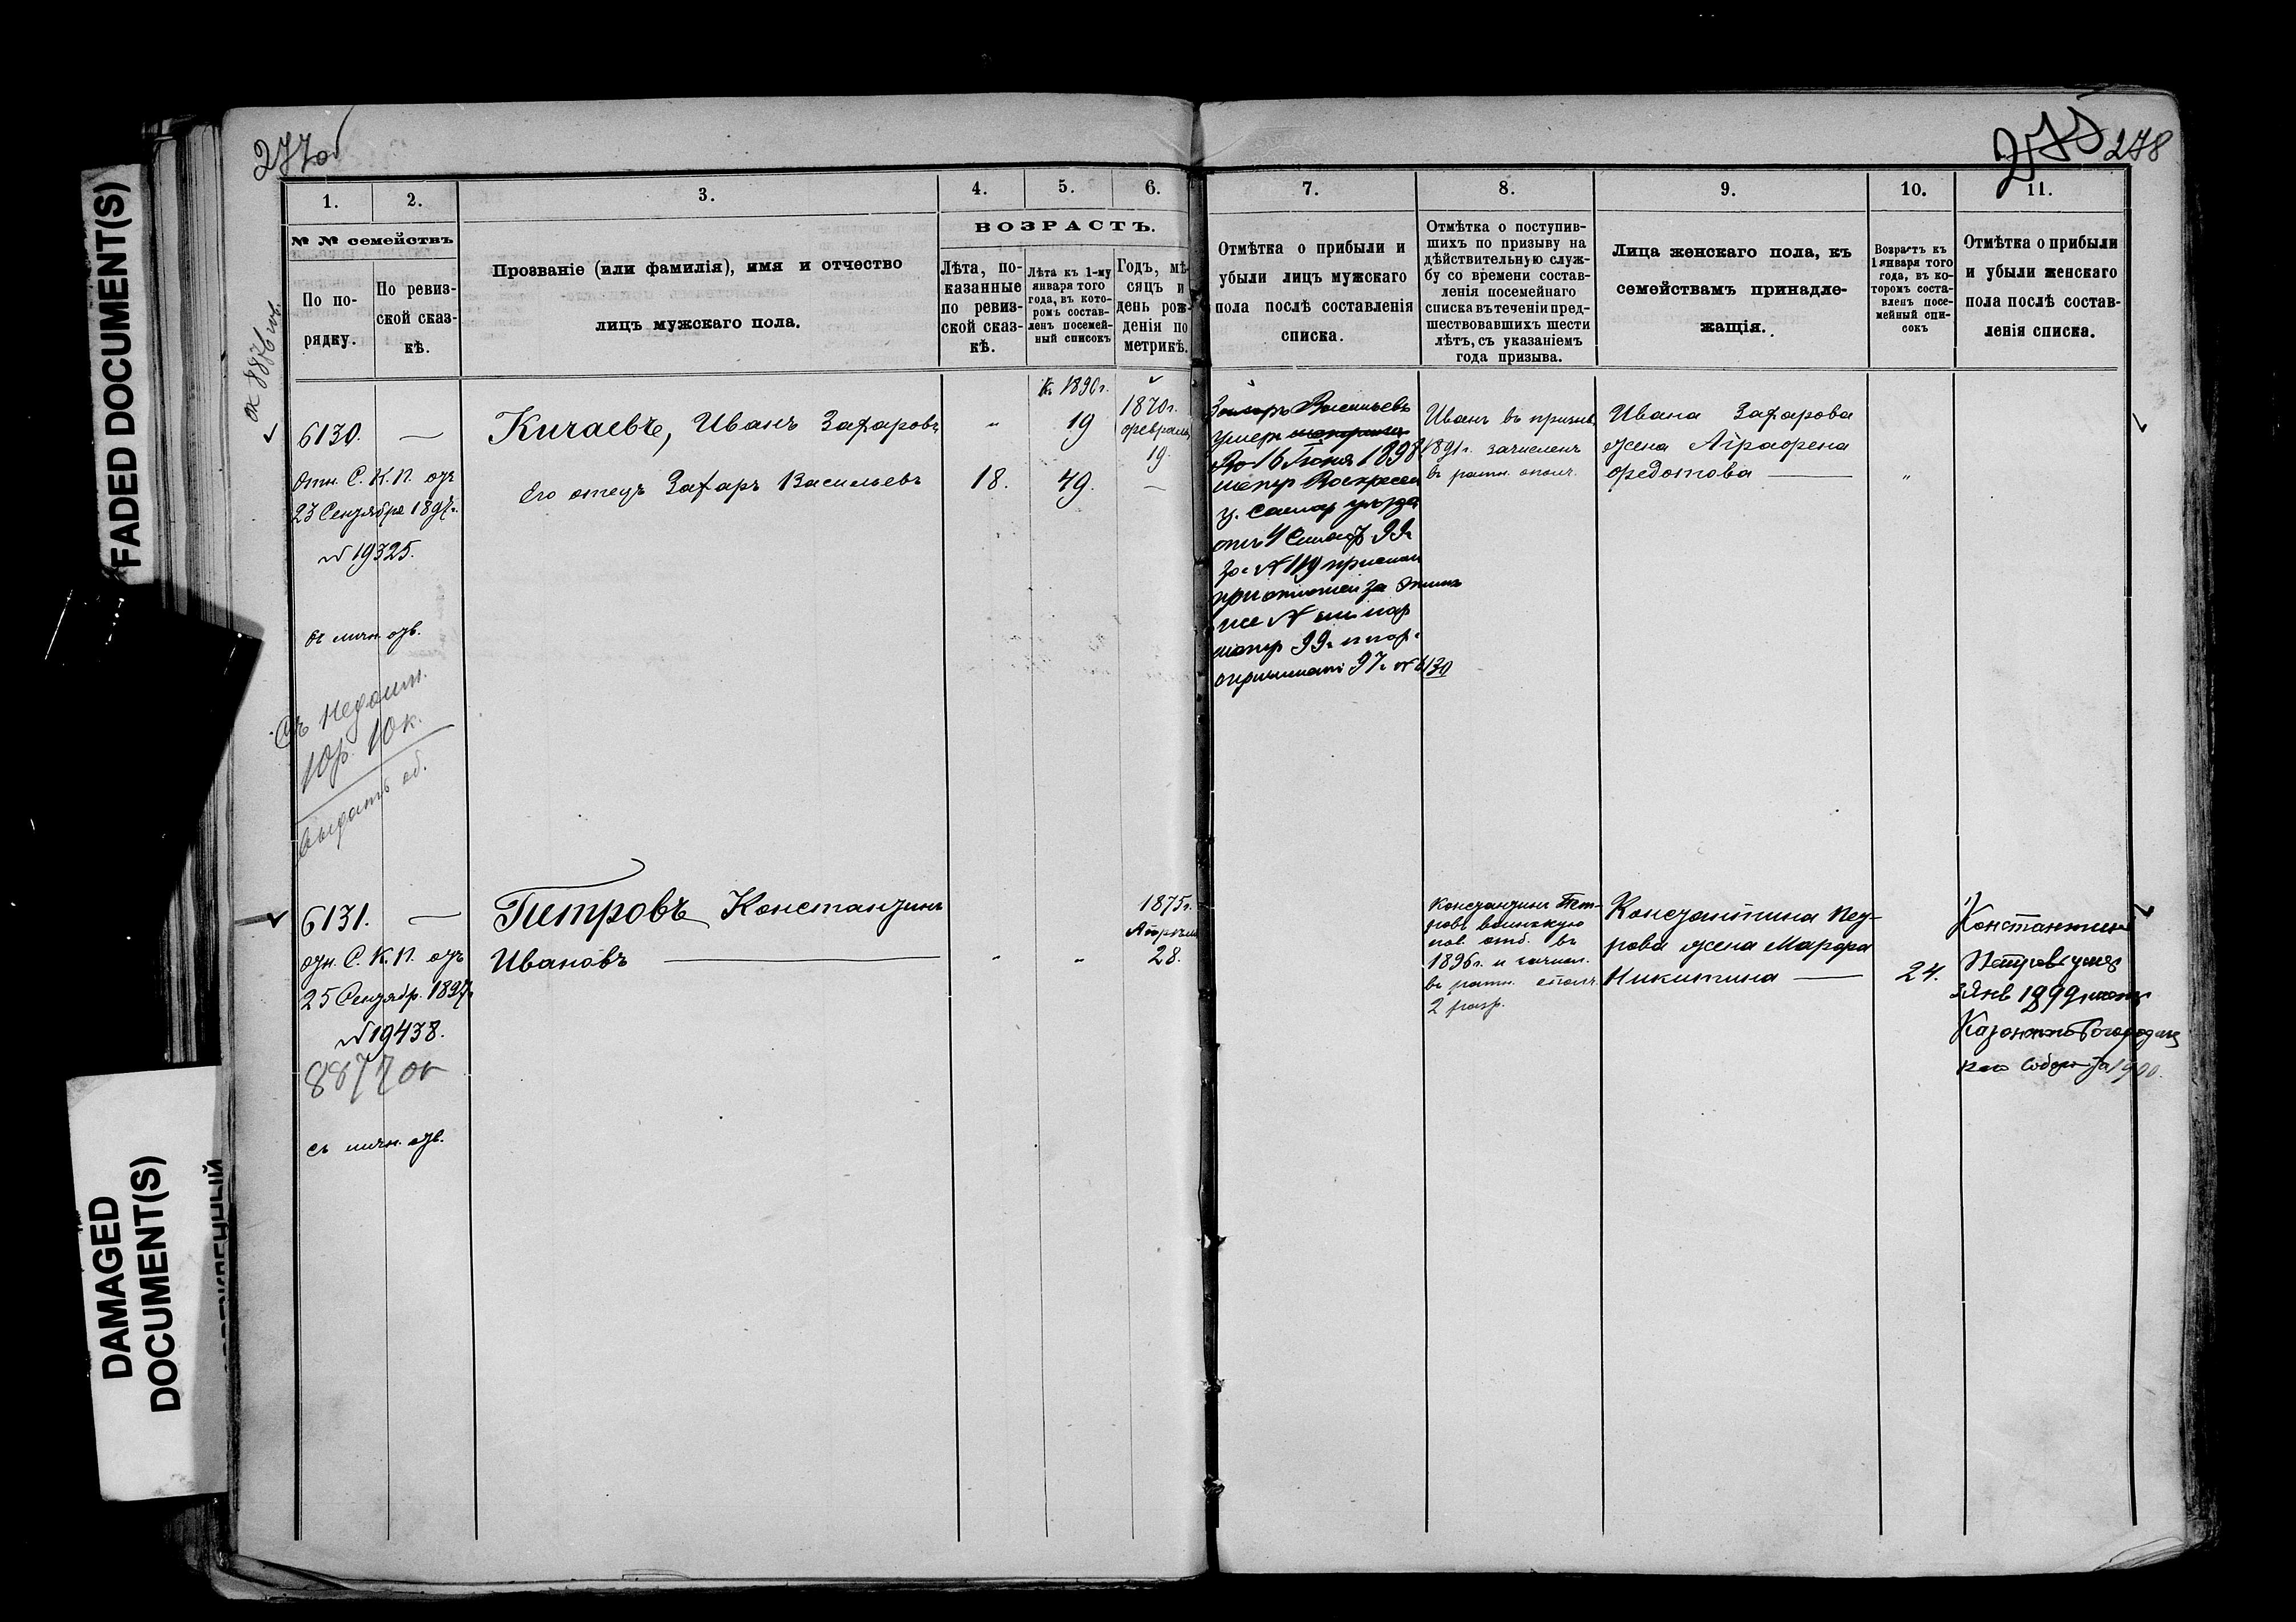 277об
278
278
FADED DOCUMENT(S)
DAMAGED
DOCUMENT(S)
1.
2.
3.
4.
5.
6.
7.
8.
9.
10.
11.
№ № семействъ
По по-
рядку.
По ревиз-
ской сказ-
кѣ.
Прозваніе (или фамилія), имя и отчество
лицъ мужскаго пола.
ВОЗРАСТЪ.
Лѣта, по-
казанные
по ревиз-
ской сказ-
кѣ.
Лѣта къ 1-му
января того
года, въ кото-
ромъ состав-
ленъ посемей-
ный списокъ
Годъ, мѣ-
сяцъ и
день рож-
денія по
метрикѣ.
Отмѣтка о прибыли и
убыли лицъ мужскаго
пола послѣ составленія
списка.
Отмѣтка о поступив-
шихъ по призыву на
дѣйствительную служ-
бу со времени состав-
ленія посемейнаго
списка въ теченіи пред-
шествовавшихъ шести
лѣтъ, съ указаніемъ
года призыва.
Лица женскаго пола, къ
семействамъ принадле-
жащія.
Возрастъ къ
1 января того
года, въ ко-
торомъ соста-
вленъ посе-
мейный спи-
сокъ
Отмѣтка о прибыли
и убыли женскаго
пола послѣ состав-
ленія списка.
ок 8876 об.
6130. —
Отн. С. К. П. отъ
23 Сентября 1897г.
№ 19325.
съ личн. отв.
Съ недоим.
10р. 10к.
выдать об.
Кичаевъ, Иванъ Захаровъ
Его отецъ Захаръ Васильевъ
18.
Къ 1890г.
19
49.
1870г.
февраля
19.
—
Захаръ Васильевъ
умеръ
16 Июня 1898
метр Воскресен
ц. Самар уѣзда
отъ 4 99г
за № 119
за этимъ
же №
метр 99г
97г № 6130
Иванъ въ призывъ
1891г. зачисленъ
въ ратн. ополч.
Ивана Захарова
жена Аграфена
Федотова —
"
6131. —
отн. С. К. П. отъ
25 Сентябр. 1897г.
№ 19438.
8877 об
съ личн. отв.
Петровъ Константинъ
Ивановъ —
"
"
1875г.
Апрѣля
28.
Константинъ Пет-
ровъ воинскую
пов. отб. въ
1896г. и зачисл.
въ ратн. ополч.
2 разр.
Константина Пет-
рова жена Марфа
Никитина —
24.
Константин
Петров умер
3 Янв 1899 метр
Казанско Богородиц
каго Собора за 1900.